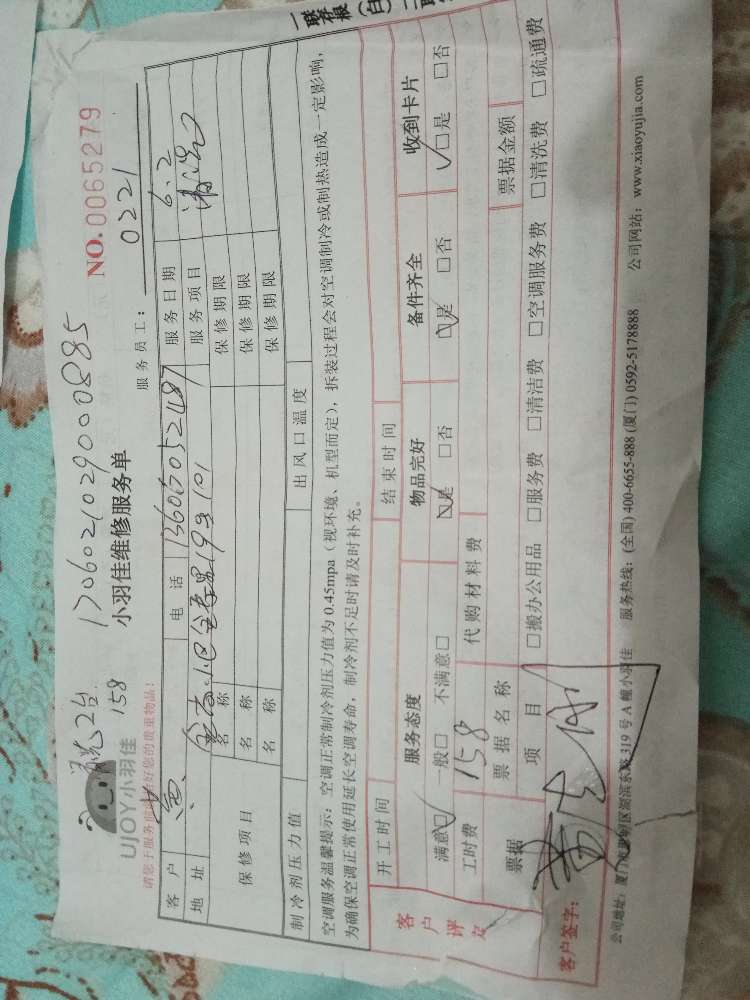 1706021029000885
洗2台
158
UJOY小羽佳
小羽佳维修服务单
NO.0065279
服务员工: 0221
请您于服务前 好您的贵重物品:
客户 黄 电话 服务日期 6.2
地址 193 101 服务项目 清洗
保修项目 名称 保修期限
名称 保修期限
名称 保修期限
制冷剂压力值 出风口温度
空调服务温馨提示: 空调正常制冷剂压力值为 0.45mpa (视环境、机型而定), 拆装过程会对空调制冷或制热造成一定影响,
为确保空调正常使用延长空调寿命, 制冷剂不足时请及时补充。
开工时间 结束时间
客户评定 服务态度 物品完好 备件齐全 收到卡片
满意□ 一般□ 不满意□ □是 □否 □是 □否 □是 □否
工时费 158 代购材料费
票据 票据名称 票据金额
项目 □搬办公用品 □服务费 □清洁费 □空调服务费 □清洗费 □疏通费
客户签字:
公司地址: 厦门 区湖滨东路 319 号 A 幢小羽佳 服务热线: (全国) 400-6655-888 (厦门) 0592-5178888 公司网站: www.xiaoyujia.com